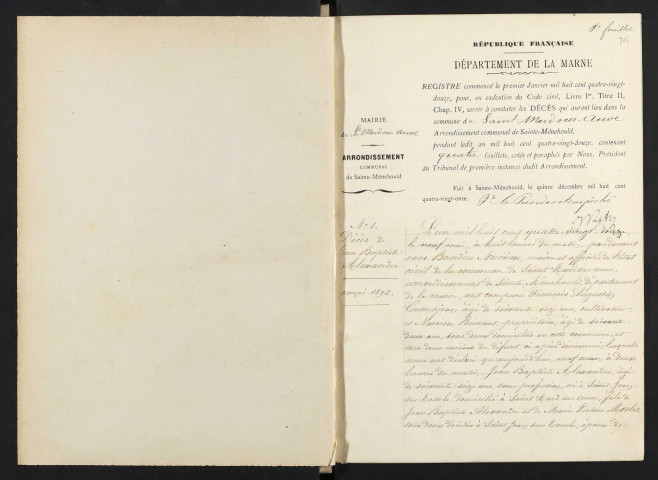 1er feuillet
RÉPUBLIQUE FRANÇAISE
DÉPARTEMENT DE LA MARNE
REGISTRE commencé le premier Janvier mil huit cent quatre-vingt-
douze, pour, en exécution du Code civil, Livre Ier, Titre II,
Chap. IV, servir à constater les DÉCÈS qui auront lieu dans la
commune de Saint Mard sur Auve
Arrondissement communal de Sainte-Ménehould,
pendant ledit an mil huit cent quatre-vingt-douze, contenant
quatre feuillets, cotés et paraphés par Nous, Président
du Tribunal de première instance dudit Arrondissement.
Fait à Sainte-Ménehould, le quinze décembre mil huit cent
quatre-vingt-onze. Pr le Président empêché
MAIRIE
de St Mard sur Auve
ARRONDISSEMENT
COMMUNAL
de Sainte-Ménehould
No 1.
Décès de
Jean Baptiste
Alexandre
9 mai 1892.
L'an mil huit cent quatre vingt douze
le neuf mai, à huit heures du matin, par devant
nous maire et officier de l'état
civil de la commune de Saint Mard sur Auve
arrondissement de Sainte Ménehould département
de la Marne, ont comparu François Auguste
âgé de soixante six ans, cultivateur
et Narcisse propriétaire, âgé de soixante
deux ans, tous deux domiciliés en cette commune, et
tous deux voisins du défunt ci après dénommé, lesquels
nous ont déclaré qu'aujourd'hui, neuf mai, à deux
heures du matin, Jean Baptiste Alexandre, âgé
de soixante seize ans, sans profession, né à Saint Jean
sur Tourbe domicilié à Saint Mard sur Auve, fils de
Jean Baptiste Alexandre et de Marie
tous deux décédés à Saint Jean sur Tourbe, époux de